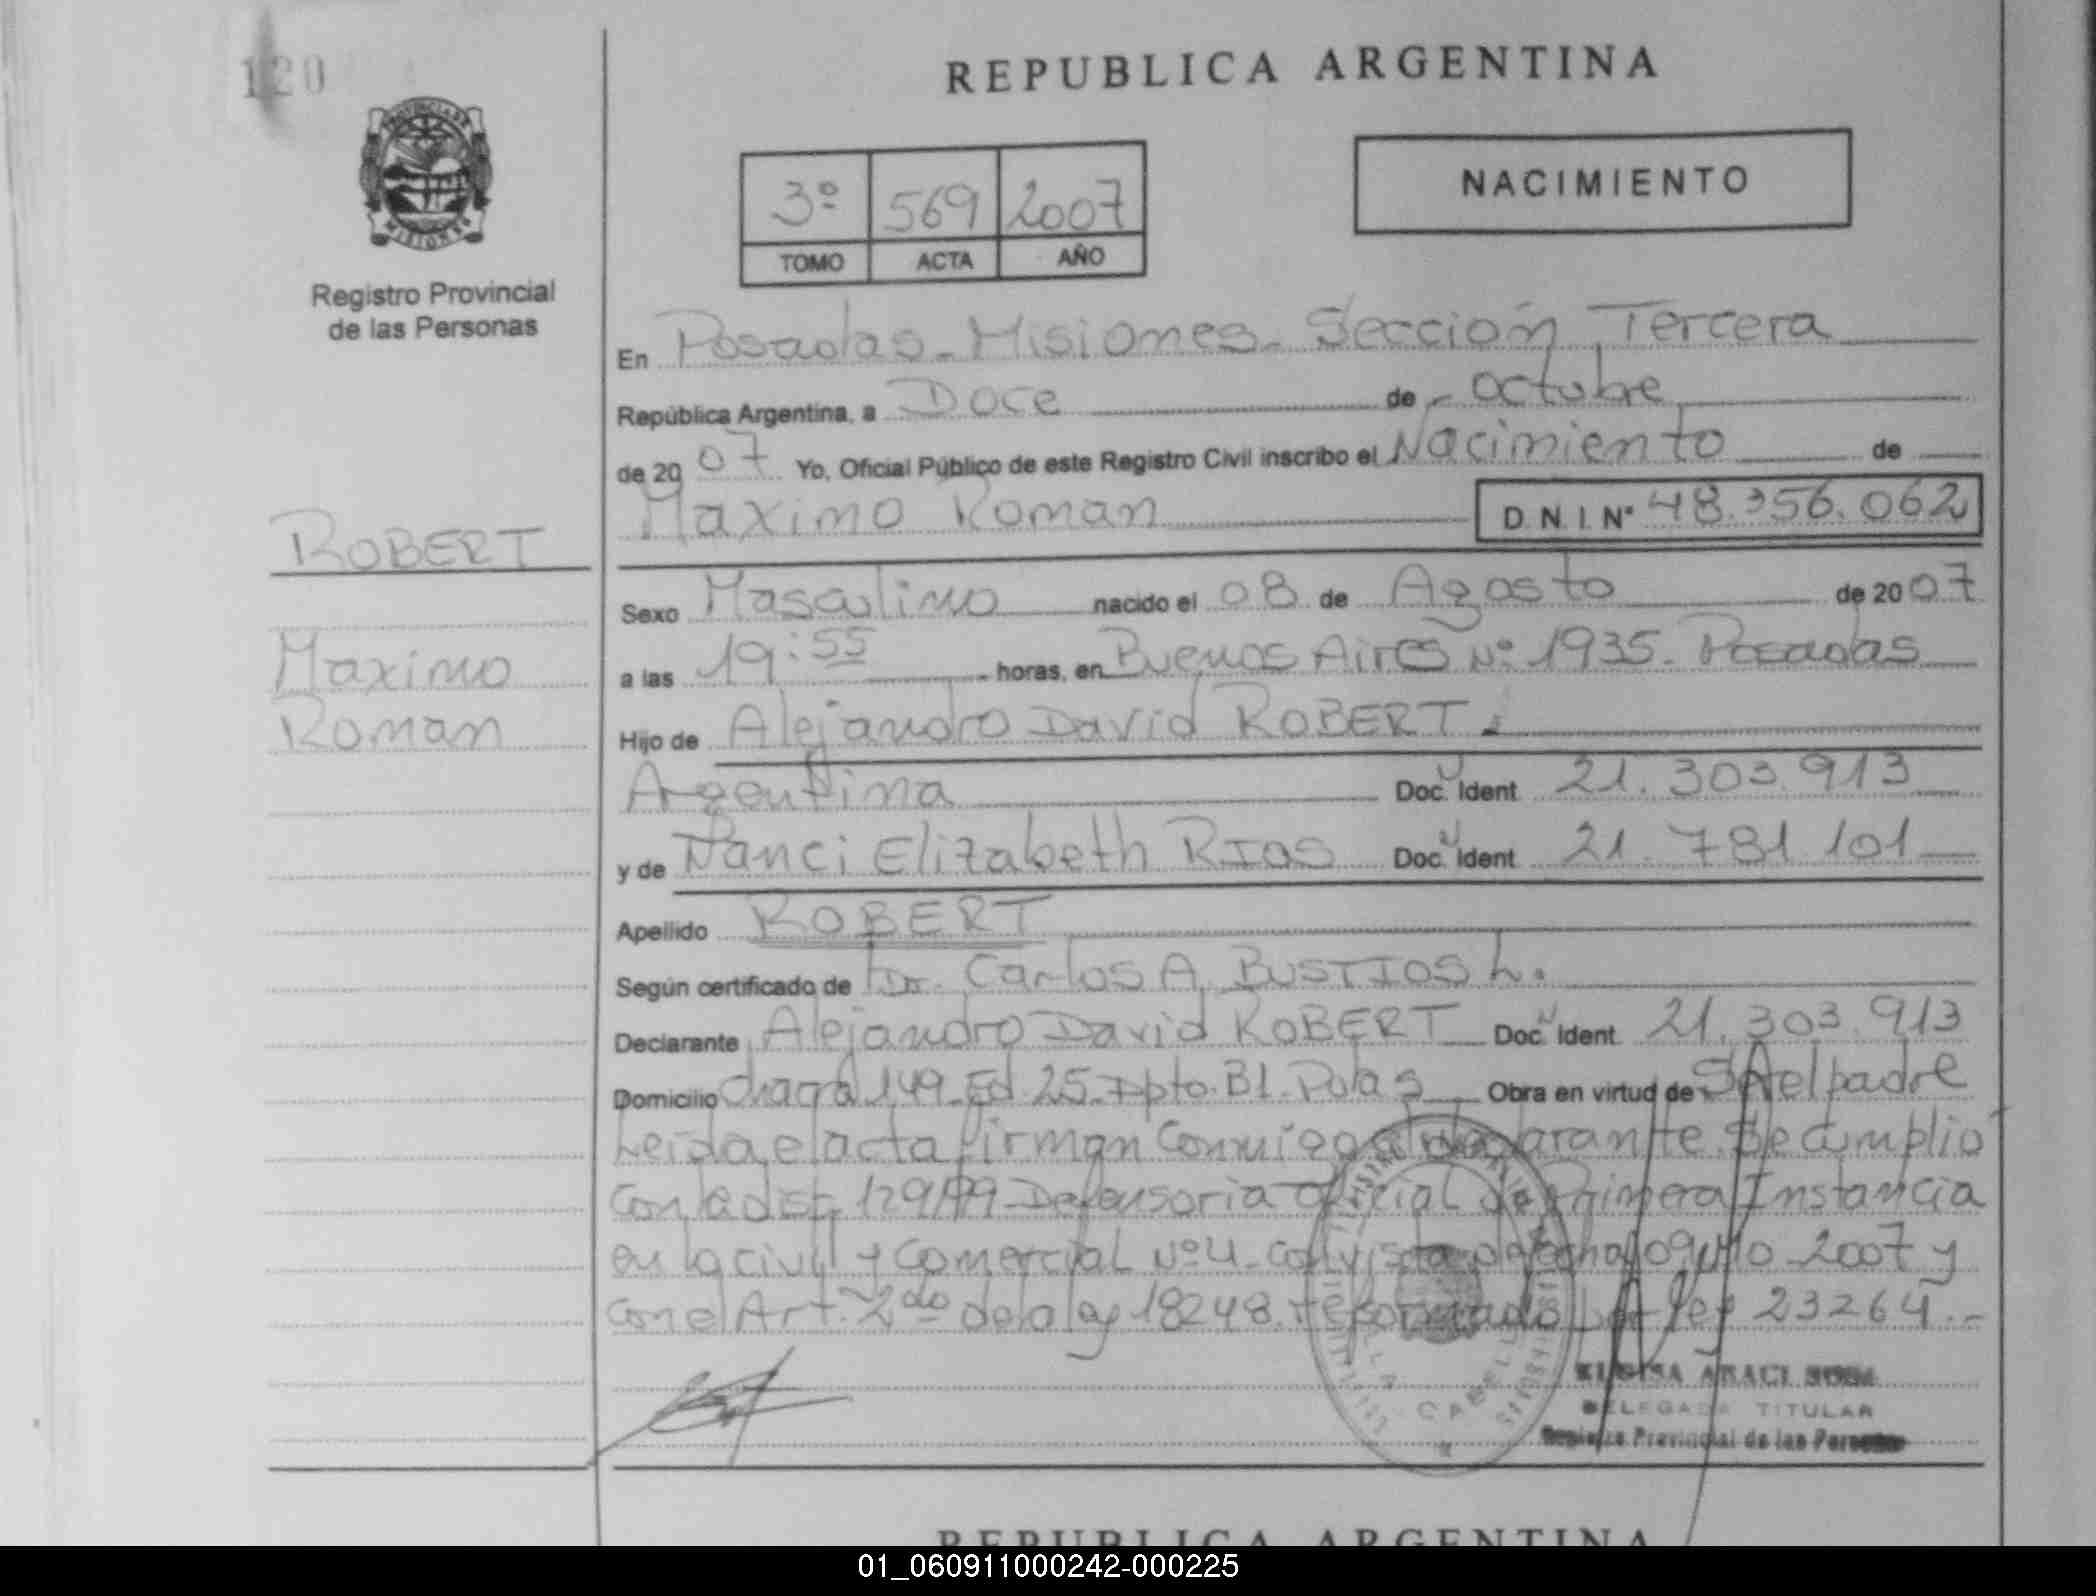 120
REPUBLICA ARGENTINA
PROVINCIA DE
MISIONES
Registro Provincial
de las Personas
3º 569 2007
TOMO ACTA AÑO
NACIMIENTO
En Posadas - Misiones - Sección Tercera
República Argentina, a Doce de - octubre
de 2007 Yo, Oficial Público de este Registro Civil inscribo el Nacimiento de
Maximo Roman D.N.I. Nº 48.356.062
ROBERT
Sexo Masculino nacido el 08 de Agosto de 2007
Maximo
a las 19:55 horas, en Buenos Aires Nº 1935. Posadas
Roman
Hijo de Alejandro David ROBERT.
Argentina Doc. Ident 21.303.913
y de Nanci Elizabeth RIOS Doc. Ident 21.781.101
Apellido ROBERT
Según certificado de Dr. Carlos A. BUSTIOS L.
Declarante Alejandro David ROBERT Doc. Ident. 21.303.913
Domicilio Chacra 149 - Ed 25 - Dpto. B1 - Obra en virtud de el padre
Leida el acta firman Conmigo el declarante. Se cumplió
Con la 129/99 - Defensoria Oficial de Primera Instancia
en lo civil y Comercial Nº 4 - con vista de fecha 09/10 - 2007 y
con el Art. 2do de la ley 18248 reformado por ley 23264.-
ARACI
DELEGADA TITULAR
Registro Provincial de las Personas
REPUBLICA ARGENTINA
01_060911000242-000225